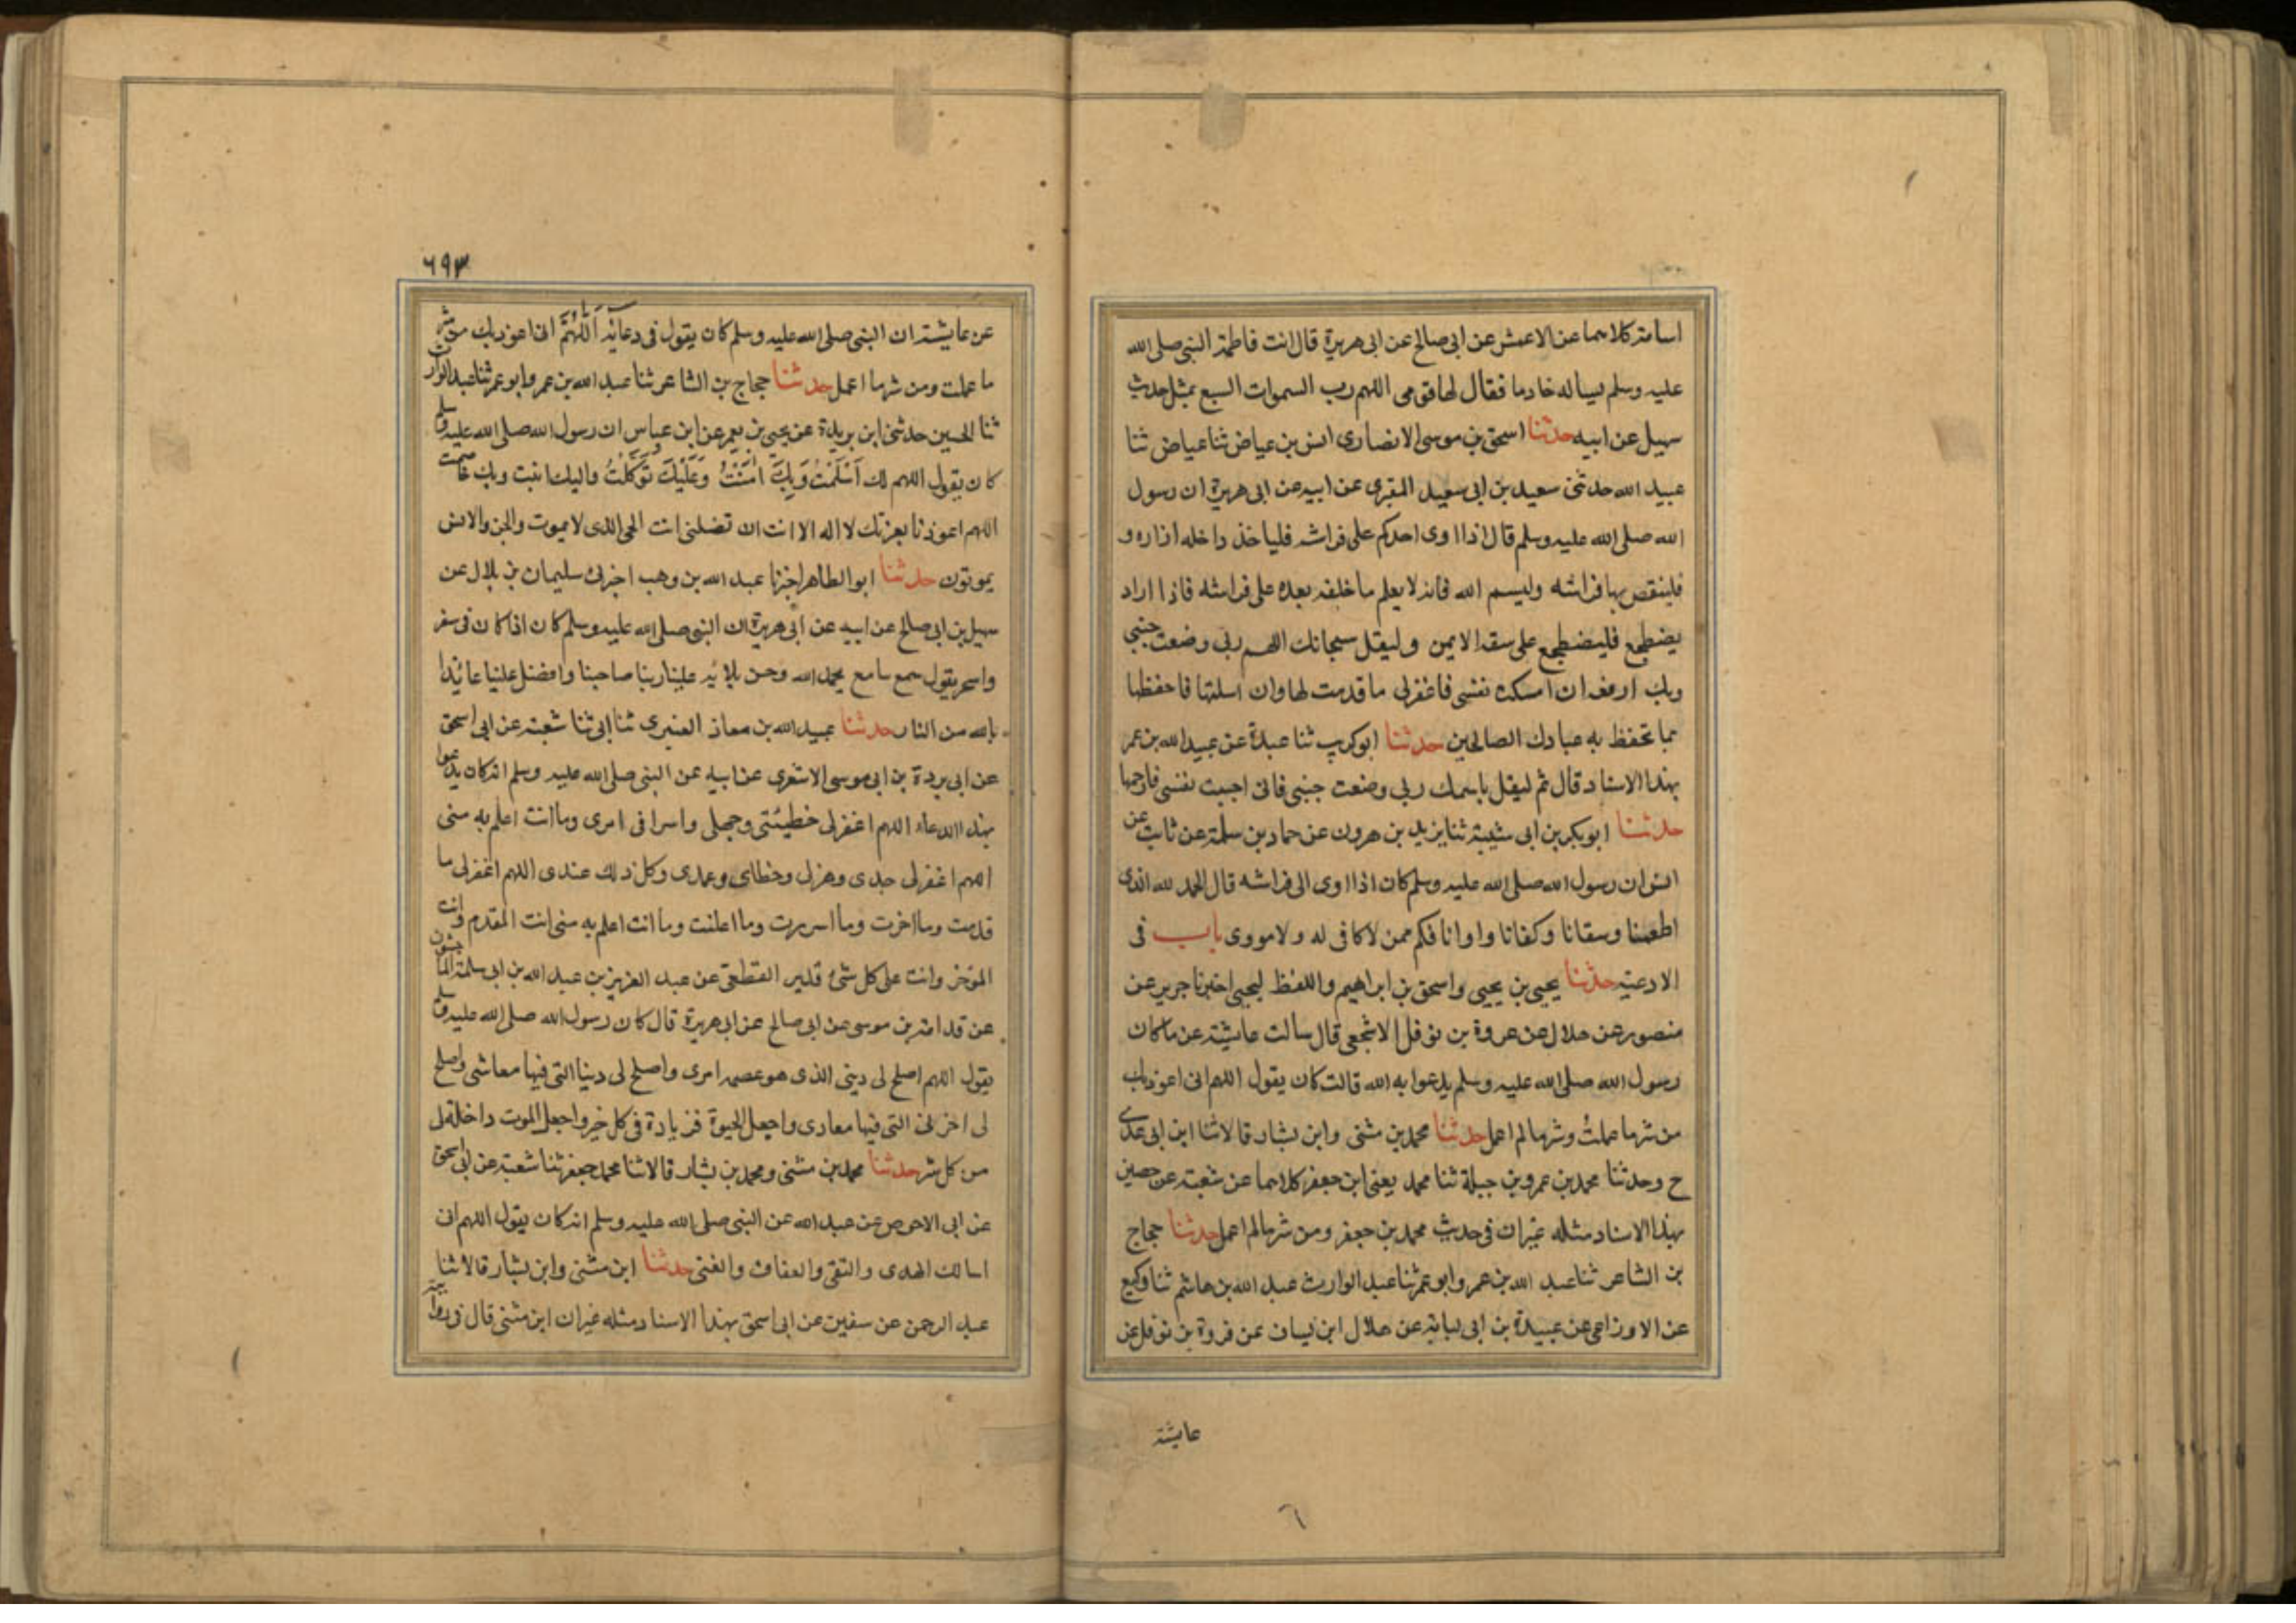 اسامة كلاهما عن الاعمش عن ابى صالح عن ابى هريرة قال اتت فاطمة النبى صلى الله
عليه وسلم يساله خادما فقال لها قومى اللهم رب السموات السبع بمثل حديث
سهيل عن ابيه حدثنا اسحق بن موسى الانصارى انس بن عياض ثنا عياض ثنا
عبيد الله حدثنى سعيد بن ابى سعيد المقبرى عن ابيه عن ابى هريرة ان رسول
الله صلى الله عليه وسلم قال اذا اوى احدكم على فراشه فلياخذ داخله ازاره و
فلينقص بها فراشه وليسم الله فانه لا يعلم ما خلفه بعده على فراشه فاذا اراد
يضطجع فليضطجع على سقه الايمن وليقل سبحانك اللهم ربى وضعت جنبى
وبك ارفعه ان امسكت نفسى فاغفرلى ما قدمت لها وان اسلتها فاحفظها
بما تحفظ به عبادك الصالحين حدثنا ابو كريب ثنا عبدة عن عبيد الله بن عمر
بهذا الاسناد قال ثم ليقل باسمك ربى وضعت جنبى فان احييت نفسى فارحمها
حدثنا ابو بكر بن ابى شيبة ثنا يزيد بن هرون عن حماد بن سلمة عن ثابت عن
انس ان رسول الله صلى الله عليه وسلم كان اذا اوى الى فراشه قال الحمد لله الذى
اطعمنا وسقانا وكفانا واوانا فكم ممن لا كافى له ولا مووى باب فى
الادعية حدثنا يحيى بن يحيى واسحق بن ابراهيم واللفظ ليحيى اخبرنا جرير عن
منصور عن هلال عن عروة بن نوفل الاشجعى قال سالت عايشة عن ما كان
رسول الله صلى الله عليه وسلم يدعوا به الله قالت كان يقول اللهم انى اعوذ بك
من شر ما عملت وشر ما لم اعمل حدثنا محمد بن مثنى وابن بشار قالا ثنا ابن ابى عدى
ح وحدثنا محمد بن عمرو بن جبلة ثنا محمد يعنى ابن جعفر كلاهما عن شعبة عن حصين
بهذا الاسناد مثله غير ان فى حديث محمد بن جعفر ومن شر ما لم اعمل حدثنا حجاج
بن الشاعر ثنا عبد الله بن عمر وابو عمر ثنا عبد الوارث عبد الله بن هاشم ثنا وكيع
عن الاوزاعى عن عبيدة بن ابى لبابة عن هلال ابن ليسان عن فروة بن نوفل عن
عايشة
٦٩٣
عن عايشة ان النبى صلى الله عليه وسلم كان يقول فى دعائه اَللّٰهُمَّ انى اعوذ بك من شر
ما عملت ومن شر ما اعمل حدثنا حجاج بن الشاعر ثنا عبد الله بن عمر وابو عمر ثنا عبد الوارث
ثنا الحسين حدثنى ابن بريدة عن يحيى بن يعمر عن ابن عباس ان رسول الله صلى الله عليه وسلم
كان يقول اللهم لك اَسْلَمْتُ وَبِكَ اٰمَنْتُ وَعَلَيْكَ تَوَكَّلْتُ واليك انبت وبك خاصمت
اللهم اعوذنا بعزتك لا اله الا انت ان تضلنى انت الحى الذى لا يموت والجن والانس
يموتون حدثنا ابو الطاهر اخبرنا عبد الله بن وهب اخبرنى سليمان بن بلال عن
سهيل بن ابى صالح عن ابيه عن ابى هريرة ان النبى صلى الله عليه وسلم كان اذا كان فى سفر
واسحر يقول سمع سامع بحمد الله وحسن بلائه علينا ربنا صاحبنا وافضل علينا عائذا
بالله من النار حدثنا عبيد الله بن معاذ العنبرى ثنا ابى ثنا شعبة عن ابى اسحق
عن ابى بردة بن ابى موسى الاشعرى عن ابيه عن النبى صلى الله عليه وسلم انه كان يدعوا
بهذا الدعاء اللهم اغفرلى خطيئتى وجهلى واسرافى امرى وما انت اعلم به منى
اللهم اغفرلى جدى وهزلى وخطاى وعمدى وكل ذلك عندى اللهم اغفرلى ما
قدمت وما اخرت وما اسررت وما اعلنت وما انت اعلم به منى انت المقدم وانت
الموخر وانت على كل شئ قدير القطعى عن عبد العزيز بن عبد الله بن ابى سلمة الماجشون
عن قدامة بن موسى عن ابى صالح عن ابى هريرة قال كان رسول الله صلى الله عليه وسلم
يقول اللهم اصلح لى دينى الذى هو عصمه امرى واصلح لى دينا التى فيها معاشى واصلح
لى اخرتى التى فيها معادى واجعل الحيوة فزيادة فى كل خير واجعل الموت داخلة لى
من كل شر حدثنا محمد بن مثنى ومحمد بن بشار قالا ثنا محمد جعفر ثنا شعبة عن ابى اسحق
عن ابى الاحوص عن عبد الله عن النبى صلى الله عليه وسلم انه كان يقول اللهم انى
اسالك الهدى والتقى والعفاف والغنى حدثنا ابن مثنى وابن بشار قالا ثنا
عبد الرحمن عن سفين عن ابى اسحق بهذا الاسناد مثله غير ان ابن مثنى قال فى روايته